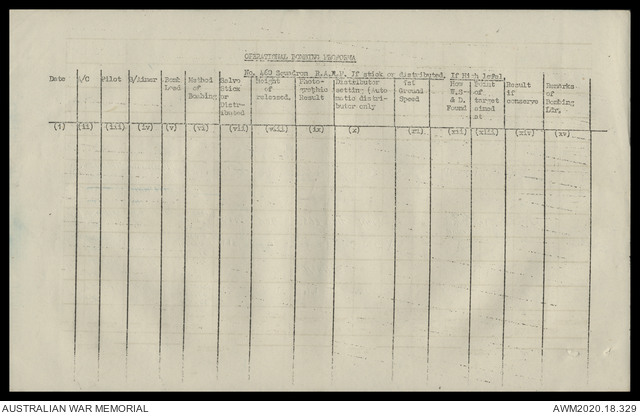 OPERATIONAL BOMBING PROFORMA
No. 460 Squadron R.A.A.F. If stick or distributed. If High level
Date A/C Pilot B/Aimer Bomb Load Method of Bombing Salvo Stick or Distr- ibuted Height of released. Photo- graphic Result Distributor setting (Auto matic distri- butor only Ground Speed How W.S. & D. Found Point of target aimed at Result if conserve Remarks of Bombing Ldr.
(i) (ii) (iii) (iv) (v) (vi) (vii) (viii) (ix) (x) (xi) (xii) (xiii) (xiv) (xv)
AUSTRALIAN WAR MEMORIAL
AWM2020.18.329